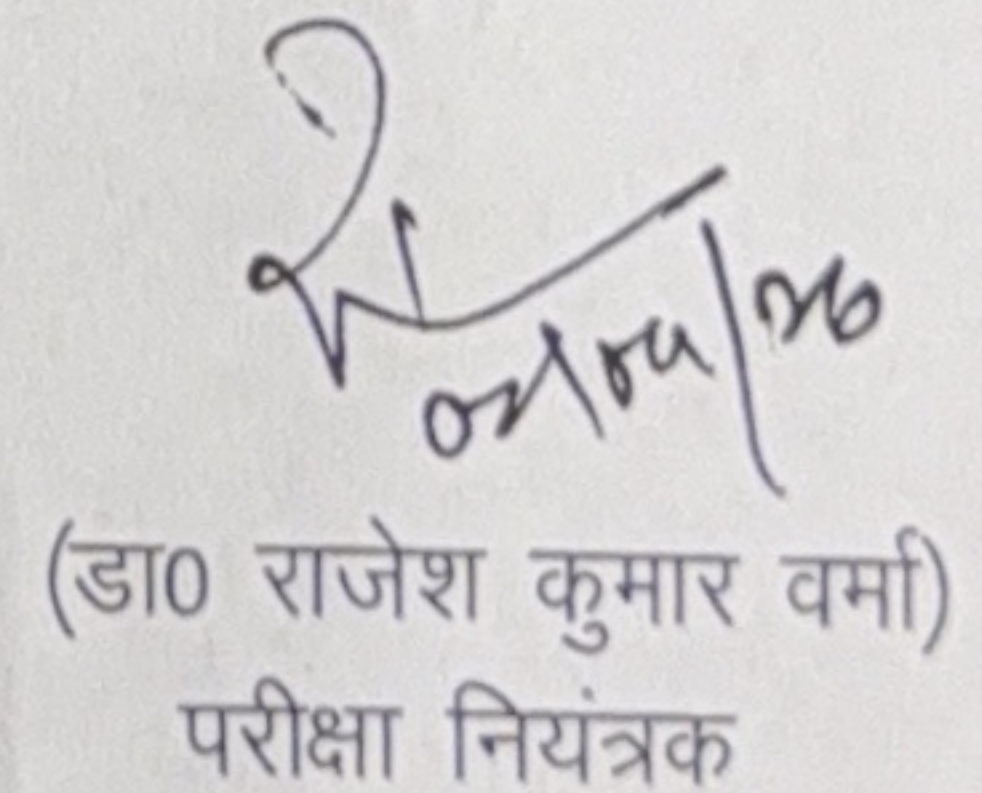 (डा0 राजेश कुमार वर्मा)
परीक्षा नियंत्रक